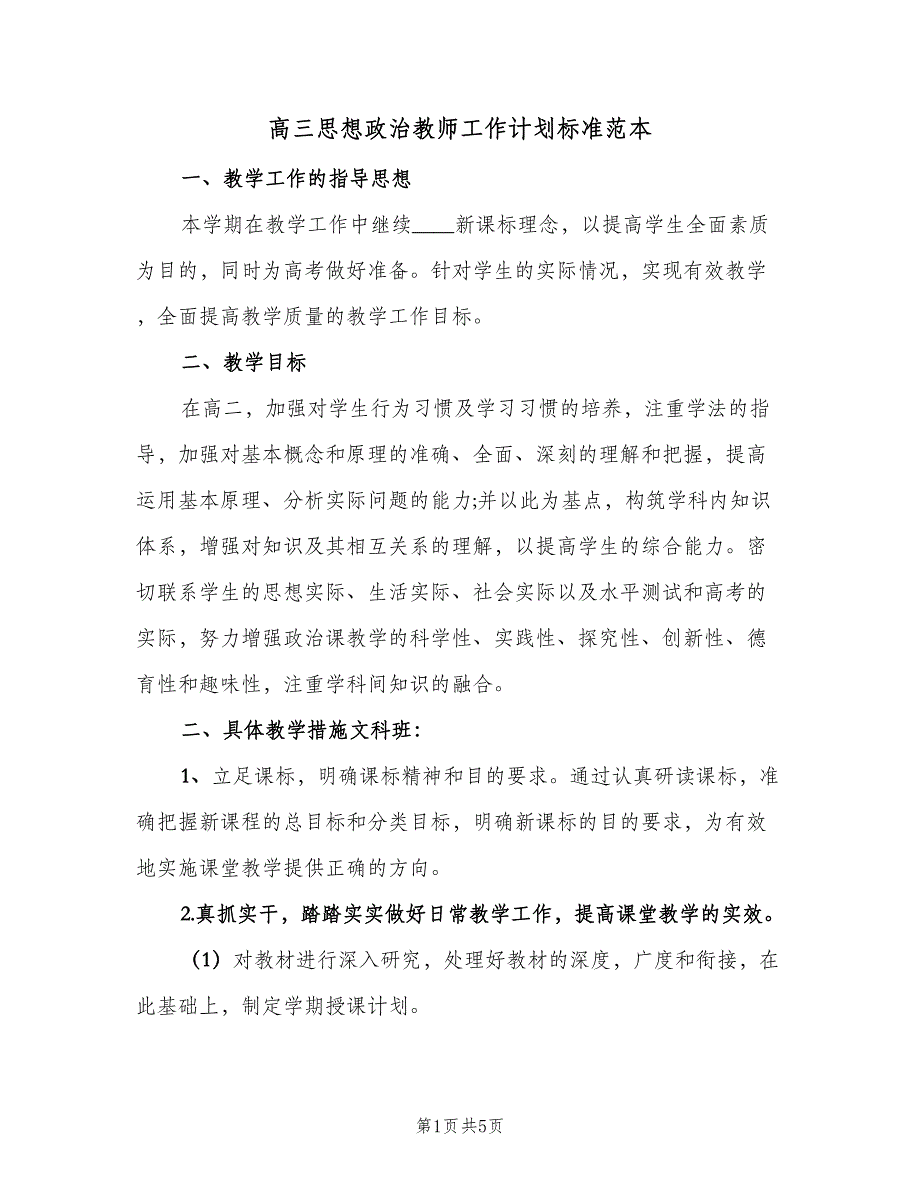 高三思想政治教师工作计划标准范本
一、教学工作的指导思想
本学期在教学工作中继续____新课标理念，以提高学生全面素质
为目的，同时为高考做好准备。针对学生的实际情况，实现有效教学
，全面提高教学质量的教学工作目标。
二、教学目标
在高二，加强对学生行为习惯及学习习惯的培养，注重学法的指
导，加强对基本概念和原理的准确、全面、深刻的理解和把握，提高
运用基本原理、分析实际问题的能力;并以此为基点，构筑学科内知识
体系，增强对知识及其相互关系的理解，以提高学生的综合能力。密
切联系学生的思想实际、生活实际、社会实际以及水平测试和高考的
实际，努力增强政治课教学的科学性、实践性、探究性、创新性、德
育性和趣味性，注重学科间知识的融合。
二、具体教学措施文科班：
1、立足课标，明确课标精神和目的要求。通过认真研读课标，准
确把握新课程的总目标和分类目标，明确新课标的目的要求，为有效
地实施课堂教学提供正确的方向。
2.真抓实干，踏踏实实做好日常教学工作，提高课堂教学的实效。
（1）对教材进行深入研究，处理好教材的深度，广度和衔接，在
此基础上，制定学期授课计划。
第1页共5页